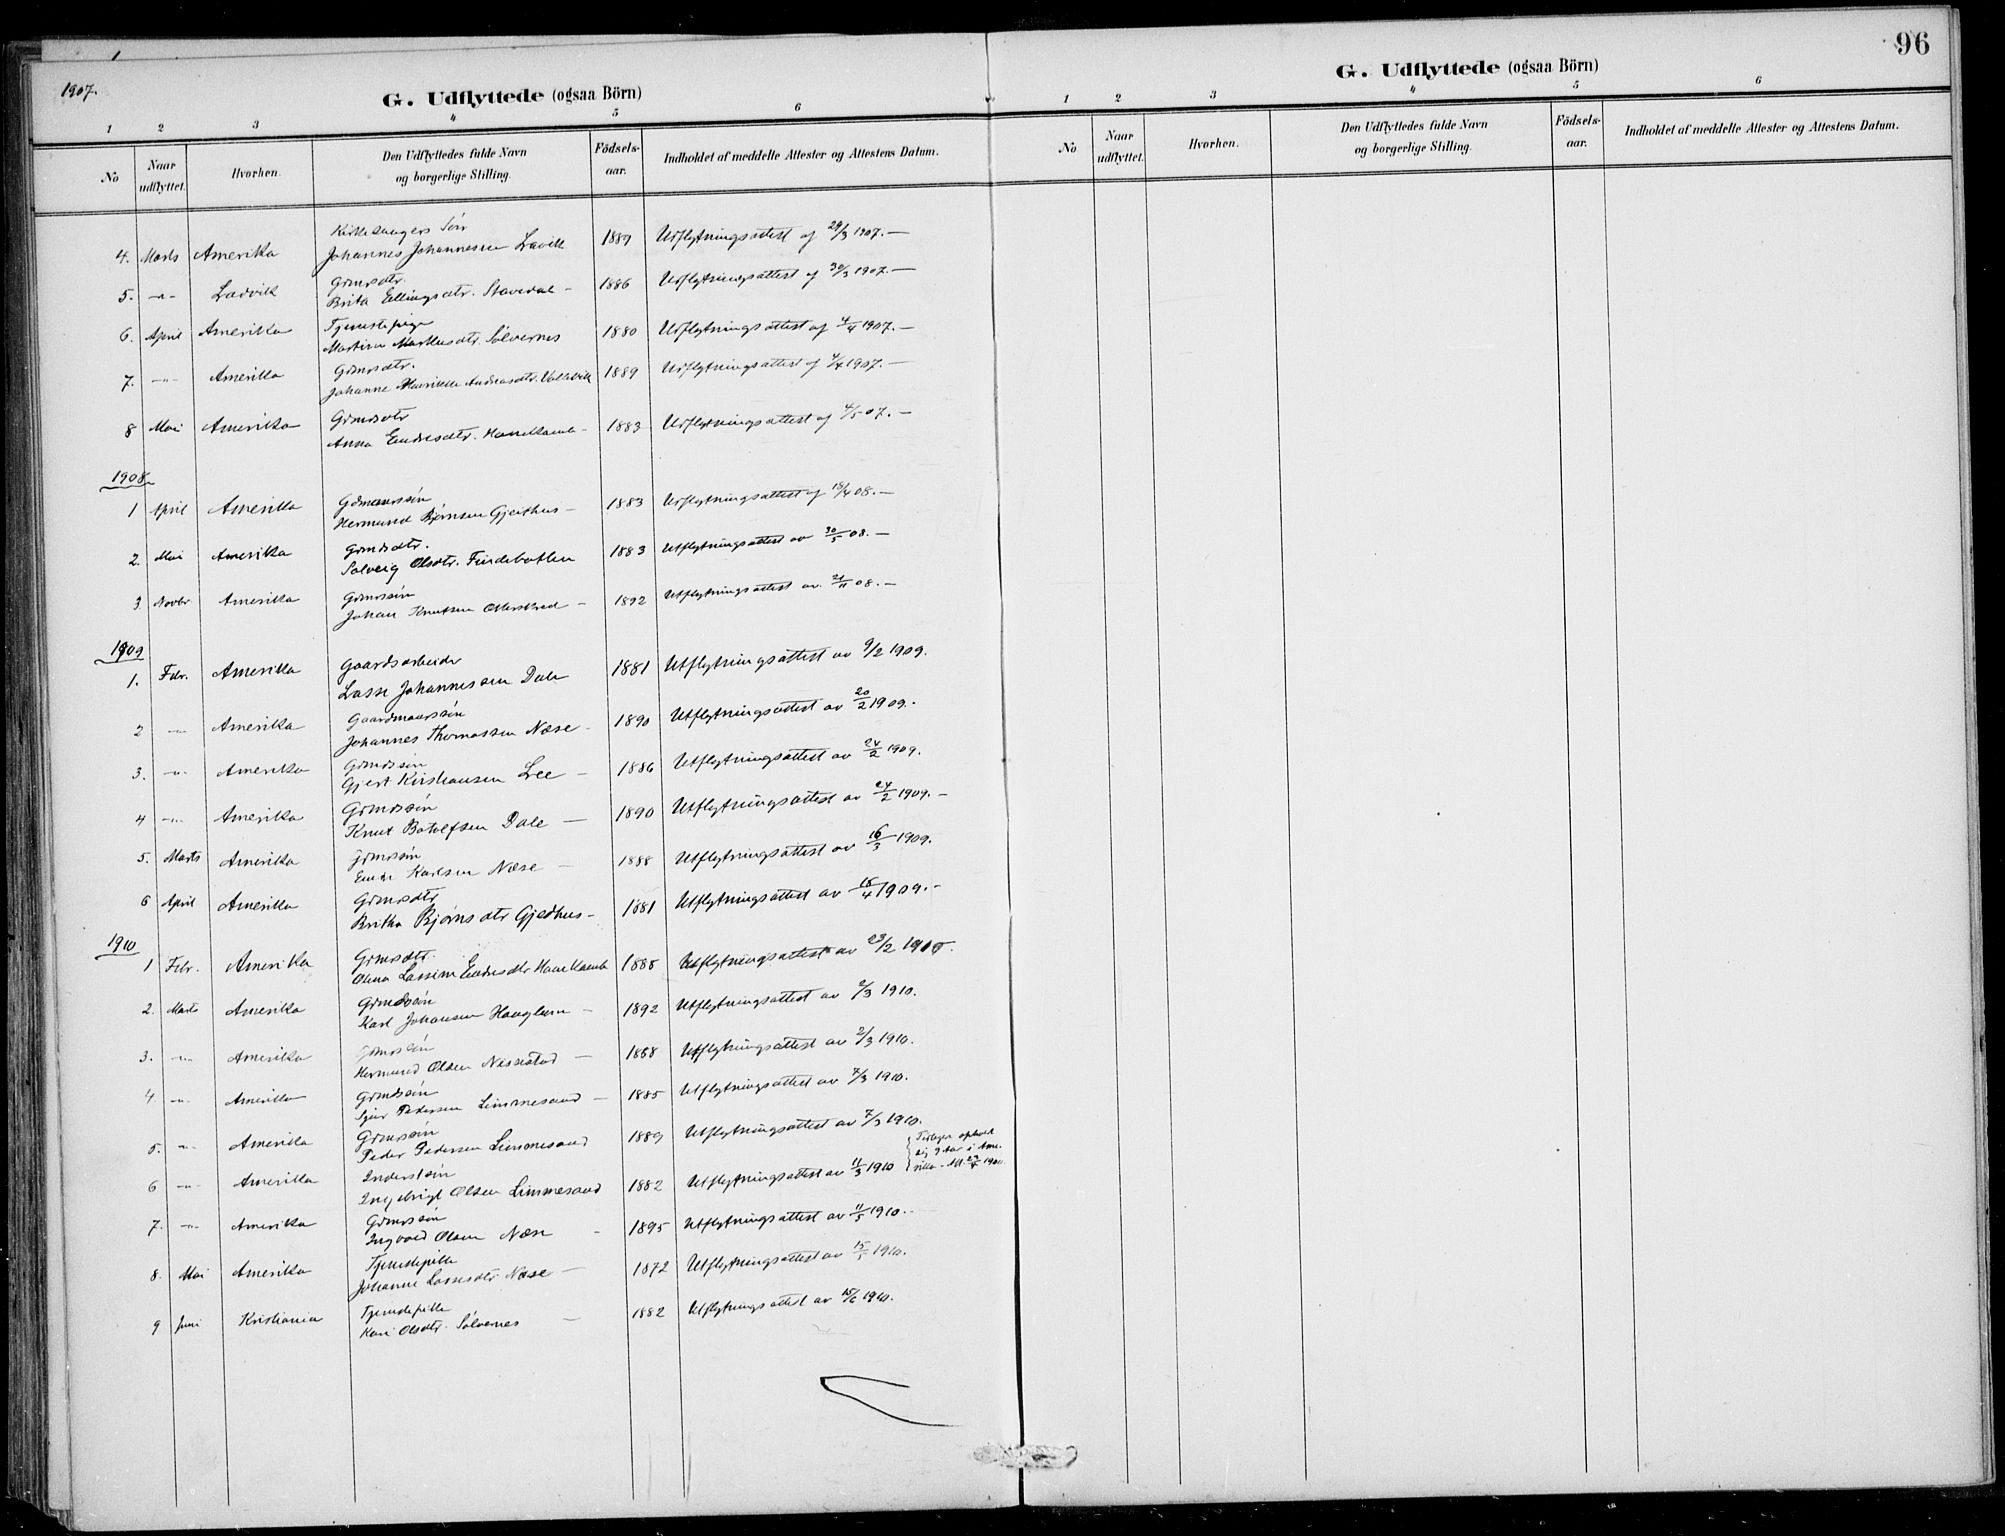 96
1907.
G. Udflyttede (ogsaa Börn)
1 2 3 4 5 6
No
Naar udflyttet.
Hvorhen.
Den Udflyttedes fulde Navn og borgerlige Stilling.
Födsels-aar.
Indholdet af meddelte Attester og Attestens Datum.
Kirkesangers Søn
4. Marts Amerika Johannes Johannessen Lavik 1889 Udflytningsattest af 29/3 1907. —
Grmdsdtr.
5. -"- Ladvik Brita Ellingsdtr. Stavedal - 1886 Udflytningsattest af 30/3 1907. —
Tjenestepige
6. April Amerika Martine Markusdtr. Sølvernes 1880 Udflytningsattest af 4/4 1907. —
Grmdsdtr.
7. -"- Amerika Johanne Andreasdtr. 1889 Udflytningsattest af 4/4 1907. —
Grmdsdtr
8 Mai Amerika Anna Endresdtr. Hanekamb - 1883 Udflytningsattest af 4/5 07. —
1908
Gdmandssøn
1 April Amerika Hermund Bjørnsen Gjerthus - 1883 Udflytningsattest af 18/4 08. —
Grmdsdtr.
2. Mai Amerika Solveig Olsdtr. Findebotten 1883 Utflytningsattest av 30/5 08. —
Grmdssøn
3 Novbr Amerika Johan Knutsen Otterskred - 1892 Utflytningsattest av 21/11 08. —
1909
Gaardsarbeider
1. Febr. Amerika Lasse Johannessen Dale 1881 Utflytningsattest av 9/2 1909.
Gaardmandssøn
2 -"- Amerika Johannes Thomassen Næse - 1890 Utflytningsattest av 20/2 1909. -
Grmdssøn
3. -"- Amerika Gjert Kristiansen Lee - 1886 Utflytningsattest av 24/2 1909.
Grmdssøn
4 -"- Amerika Knut Botolfsen Dale — 1890 Utflytningsattest av 24/2 1909. —
Grmdssøn
5. Marts Amerika Endre Karlsen Næse — 1888 Utflytningsattest av 16/3 1909.
Grmdsdtr
6 April Amerika Britha Bjørnsdtr Gjerthus - 1881 Utflytningsattest av 18/4 1909. -
1910
Grmdsdtr.
1 Febr. Amerika Lassine Endresdtr Hanekamb 1888 Utflytningsattest av 23/2 1910.
Grmdssøn
2. Marts Amerika Karl Johansen Haaglum - 1892 Utflytningsattest av 2/3 1910.
Grmdssøn
3. -"- Amerika Hermund Olsen Nessestad — 1888 Utflytningsattest av 2/3 1910.
Grmdssøn
4. -"- Amerika Sjur Pedersen Limmesand - 1885 Utflytningsattest av 7/3 1910.
Grmdssøn
5. -"- Amerika Peder Pedersen Limmesand 1889 Utflytningsattest av 7/3 1910.
Inderstsøn
6 -"- Amerika Ingebrigt Olsen Limmesand 1882 Utflytningsattest av 11/3 1910
Grmdssøn
7. -"- Amerika Ingvald Olsen Næse - 1895 Utflytningsattest av 11/5 1910. -
Tjenestepike
8. Mai Amerika Johanne Lassesdtr Næse - 1872 Utflytningsattest av 15/5 1910.
Tjenestepike
9 Juni Kristiania Kari Olsdtr. Sølvernes — 1882 Utflytningsattest av 15/6 1910.
G. Udflyttede (ogsaa Börn)
1 2 3 4 5 6
No
Naar udflyttet.
Hvorhen.
Den Udflyttedes fulde Navn og borgerlige Stilling.
Födsels-aar.
Indholdet af meddelte Attester og Attestens Datum.